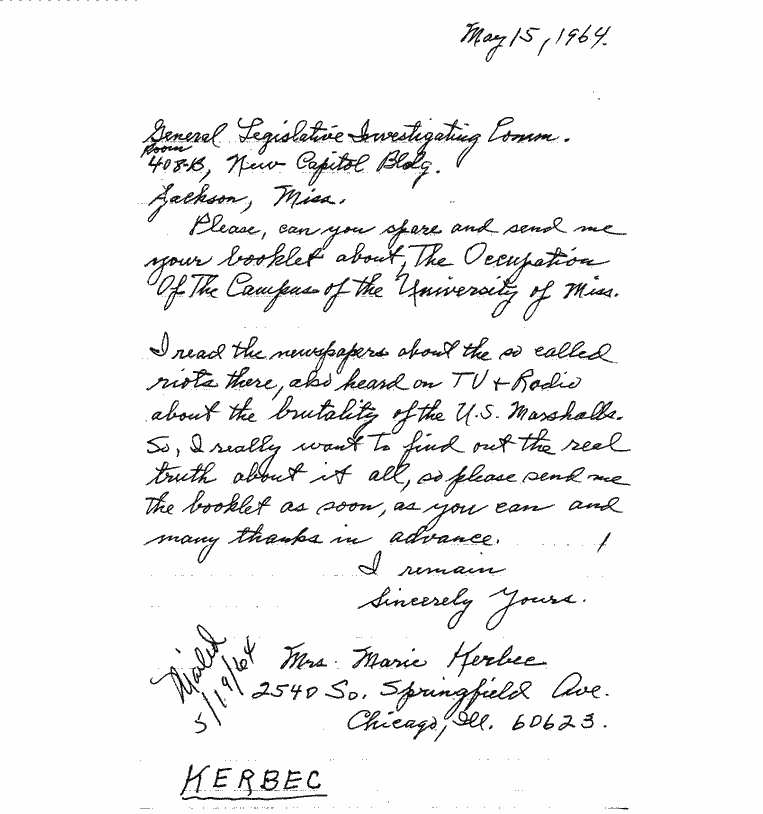 May 15, 1964.
General Legislative Investigating Comm.
Room
408-B, New Capitol Bldg.
Jackson, Miss.
Please, can you spare and send me
your booklet about, The Occupation
Of The Campus of the University of Miss.
I read the newspapers about the so called
riots there, also heard on TV + Radio
about the brutality of the U.S. Marshalls.
So, I really want to find out the real
truth about it all, so please send me
the booklet as soon, as you can and
many thanks in advance.
I remain
Sincerely Yours.
Mrs. Marie Kerbec
2540 So. Springfield Ave.
Chicago, Ill. 60623.
Mailed
5/19/64
KERBEC